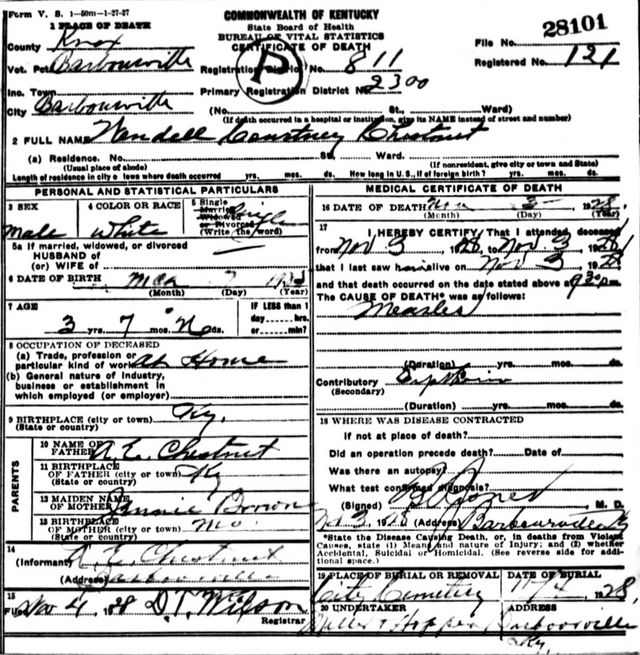 Form V. S. 1-50m-1-27-27
COMMONWEALTH OF KENTUCKY
State Board of Health
BUREAU OF VITAL STATISTICS
CERTIFICATE OF DEATH
28101
1 PLACE OF DEATH
County Knox
File No.
Registered No. 121
Vot. Pct. Barbourville
Registration District No. 811
P
Inc. Town
Primary Registration District No. 2300
City Barbourville
(No. St., Ward)
(If death occurred in a hospital or institution, give its NAME instead of street and number)
2 FULL NAME Wendell Courtney Chestnut
(a) Residence. No. St., Ward.
(Usual place of abode) (If nonresident, give city or town and State)
Length of residence in city or town where death occurred yrs. mos. ds. How long in U.S., if of foreign birth? yrs. mos. ds.
PERSONAL AND STATISTICAL PARTICULARS
3 SEX
Male
4 COLOR OR RACE
White
5 Single
Married
Widowed
or Divorced
(Write the word)
Single
5a If married, widowed, or divorced
HUSBAND of
(or) WIFE of
6 DATE OF BIRTH
(Month) (Day) (Year)
7 AGE
3 yrs. 7 mos. ds.
IF LESS than 1
day---hrs.
or---min.?
8 OCCUPATION OF DECEASED
(a) Trade, profession or
particular kind of work At Home
(b) General nature of industry,
business or establishment in
which employed (or employer)
9 BIRTHPLACE (city or town) Ky.
(State or country)
PARENTS
10 NAME OF
FATHER A. E. Chestnut
11 BIRTHPLACE
OF FATHER (city or town) Ky
(State or country)
12 MAIDEN NAME
OF MOTHER Jennie Brown
13 BIRTHPLACE
OF MOTHER (city or town) Mo.
(State or country)
14
(Informant) A. E. Chestnut
(Address) Barbourville
15
Filed Nov 4, 1928 D. T. Wilson
Registrar
MEDICAL CERTIFICATE OF DEATH
16 DATE OF DEATH Nov 3 1928
(Month) (Day) (Year)
17
I HEREBY CERTIFY, That I attended deceased
from Nov 3 1928, to Nov 3 1928
that I last saw him alive on Nov 3 1928
and that death occurred on the date stated above at 9 30 p.m.
The CAUSE OF DEATH* was as follows:
Measles
(Duration) yrs. mos. ds.
Contributory
(Secondary)
(Duration) yrs. mos. ds.
18 WHERE WAS DISEASE CONTRACTED
If not at place of death?
Did an operation precede death? Date of
Was there an autopsy?
What test confirmed diagnosis?
(Signed) Jones M. D.
Nov 3, 1928 (Address) Barbourville Ky
*State the Disease Causing Death, or, in deaths from Violent
Causes, state (1) Means and nature of Injury; and (2) whether
Accidental, Suicidal or Homicidal. (See reverse side for addi-
tional space.)
19 PLACE OF BURIAL OR REMOVAL
City Cemetery
DATE OF BURIAL
11/4 1928
20 UNDERTAKER
Miller & Hopper Barbourville
Ky.